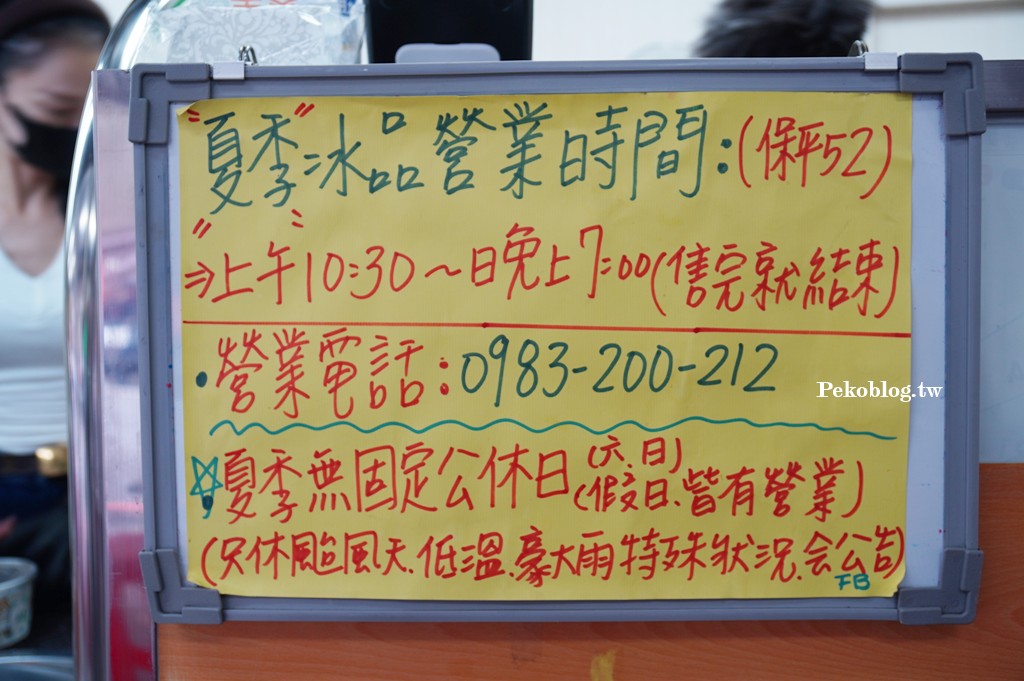 "夏季"冰品營業時間:(保平52)
"⇒上午10:30~"晚上7:00(售完就結束)
·營業電話:0983-200-212
Pekoblog.tw
☆夏季無固定公休日(六.日)(假日.皆有營業)
(只休颱風天.低溫.豪大雨特殊狀況.会公告)
FB